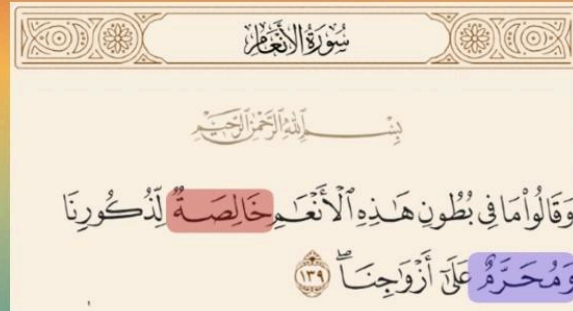 سُورَةُ الْأَنْعَامِ
بِسْمِ اللَّهِ الرَّحْمَٰنِ الرَّحِيمِ
وَقَالُوا۟ مَا فِى بُطُونِ هَـٰذِهِ ٱلْأَنْعَـٰمِ خَالِصَةٌ لِّذُكُورِنَا
وَمُحَرَّمٌ عَلَىٰٓ أَزْوَٰجِنَا ۖ ١٣٩